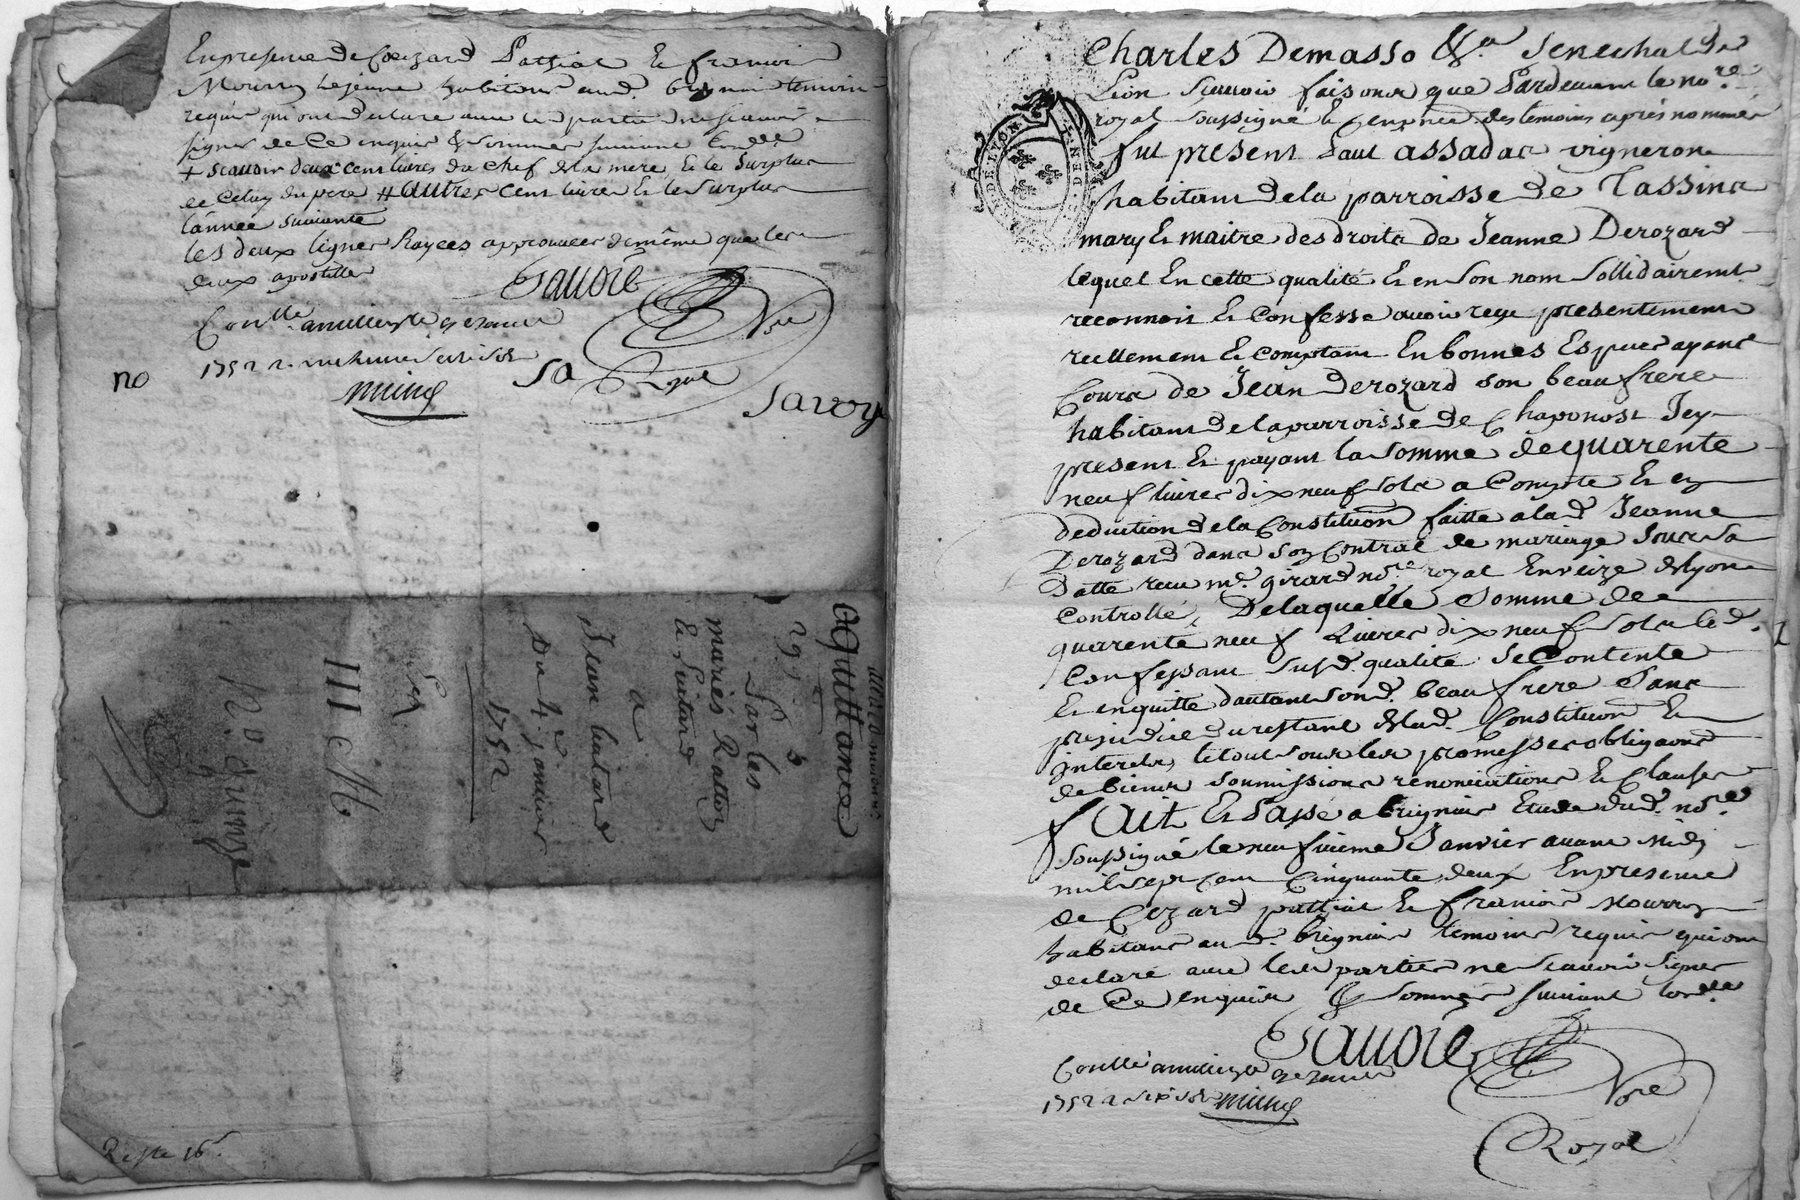 En presence de Cezard Patriat & francois
Mourroy le jeune habitans aud. brignais temoins
requis qui ont declaré avec les parties ne scavoir
signer de ce enquis & sommes suivant l'ord.
+ scavoir deux cent livres du chef de la mere, & le surplus
de celuy du pere # autres cent livres & le surplus
l'année suivante
les deux lignes Rayees approuvees de même que les
deux apostilles
Savoie
Nore
Royal
Conllé
1752
no
sa
savoy
quittance
Sarles
mariés Ratton
& Liutard
a
Jean liutard
Du 4e janvier
1752
III
Reste 16
Charles Demasso &a Senechal de
Lion Scavoir faisons que Pardevant le nore
royal soussigné & en presence des temoins après nommés
fut present Paul assada vigneron
habitant de la parroisse de Tassins
mary & maitre des droits de Jeanne Derozard
lequel En cette qualité & en son nom sollidairemt
reconnoit & confesse avoir reçu presentement
reellement & comptant En bonnes Especes ayant
Cours de Jean Derozard son beaufrere
habitant de la parroisse de Chaponost Icy
present & payant la somme de quarente
neuf livres dix neuf sols a Compte & en
deduction de la Constitution faitte a lad. Jeanne
Derozard dans son Contrat de mariage sour sa
datte recu me. girard nore royal En veize & lyon
Controllé, De laquelle somme de
quarente neuf Livres dix neuf sols led.
Confessant susd. qualité se Contente
& en quitte d'autant sond. beaufrere sans
prejudice du restant de lad. Constitution &
interets, le tout sous les promesses obligaons
de biens soumissions renonciations & clauses
fait & Passé a brignais Etude dud. nore
soussigné le neuf vieme Janvier avant Midy
mil sept cent Cinquante deux En presence
de Cezard patriat & francois Mourroy
habitans aud. brignais temoins requis qui ont
declaré avec les parties ne scavoir signer
de Ce enquis & sommés suivant l'ord.
Savoie
Nore
Royal
Conllé
1752
DE LYON